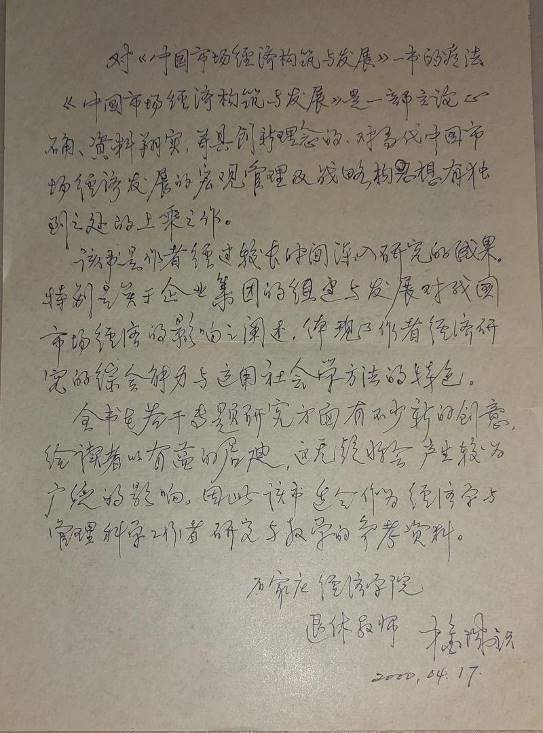 对《中国市场经济构筑与发展》一书的看法
《中国市场经济构筑与发展》是一部立论正
确、资料翔实，并具创新理念的、对当代中国市
场经济发展的宏观管理及战略构思想有独
到之处的上乘之作。
该书是作者经过较长时间深入研究的成果。
特别是关于企业集团的组建与发展对我国
市场经济的影响之阐述，体现了作者经济研
究的综合能力与运用社会学方法的特色。
全书在若干专题研究方面有不少新的创意，
给读者以有益的启迪，这无疑将会产生较为
广泛的影响。因此该书适合作为经济学与
管理科学工作者研究与教学的参考资料。
石家庄经济学院
退休教师
2000.04.17.